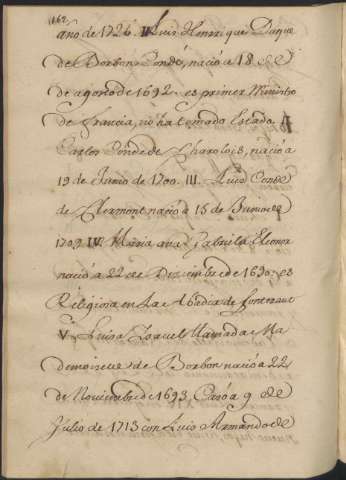 162
año de 1726. II Luis Henrrique Duque
de Borbon Condé, nació a 18 de
de agosto de 1692. es primer Ministro
de Francia, no ha tomado Estado.
Carlos Conde de Charolois, nació a
19 de Junio de 1700. III. Luis Conde
de Clermont nació a 15 de Junio de
1709 IV. Maria ana Gabriela Eleonor
nació a 22 de Diziembre de 1690. es
Religiosa en La Abadia de fontevraut
V. Luisa Isavel llamada Ma
demoiselle de Borbon nació a 22
de Noviembre de 1693. Casó a 9 de
Julio de 1713 con Luis Armando de